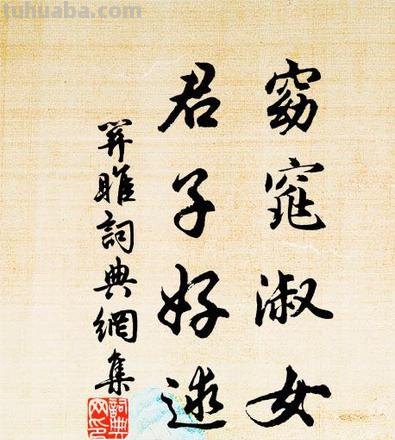 窈窕淑女
君子好逑
關雎詞典網集
詞典网印
tuhuaba.com